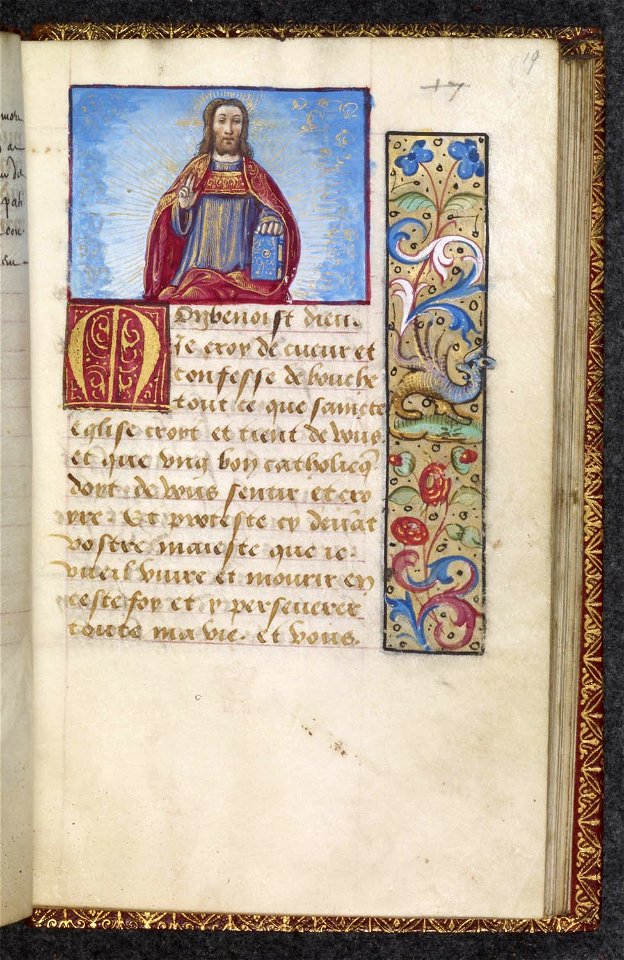 19
17
Mon benoist dieu.
Je croy de cueur et
confesse de bouche
tout ce que saincte
eglise croyt et tient de vous
et que ung bon catholicq̄
doyt de vous sentir et cro
yre. Et proteste cy devāt
vostre maieste que ie
vueil vivre et mourir en
ceste foy et y perseverer
toute ma vie. et vous